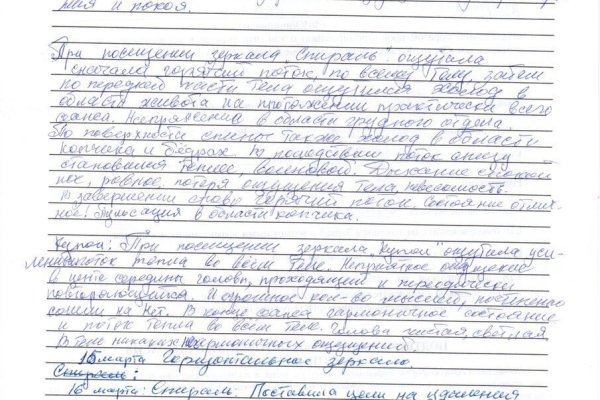 ния и покоя.
При посещении зеркала "Спираль" ощутила
сначала горячий поток, по всему телу, затем
по передней части тела ощущался холод в
области живота на протяжении практически всего
сеанса. Напряжение в области грудного отдела.
По поверхности спины также холод в области
копчика и бёдрах. В последствии поток снизу
становился теплее, волновой. Дыхание спокой
ное, ровное, потеря ощущения тела, невесомость.
В завершении снова горячий поток. Состояние отлич-
ное. Пульсация в области копчика.
Купол: При посещении зеркала "Купол" ощутила уси-
ление поток тепла во всём теле. Неприятное ощущение
в центе середины головы, проходящий и переодически
повторяющийся. И огромное кол-во мыслей, постепенно
сошли на нет. В конце сеанса гармоничное состояние
и поток тепла во всём теле. Голова чистая, светлая,
В теле никаких не гармоничных ощущений.
15 марта Горизонтальное зеркало.
Спираль:
16 марта: Спираль. Поставила цели на удаления